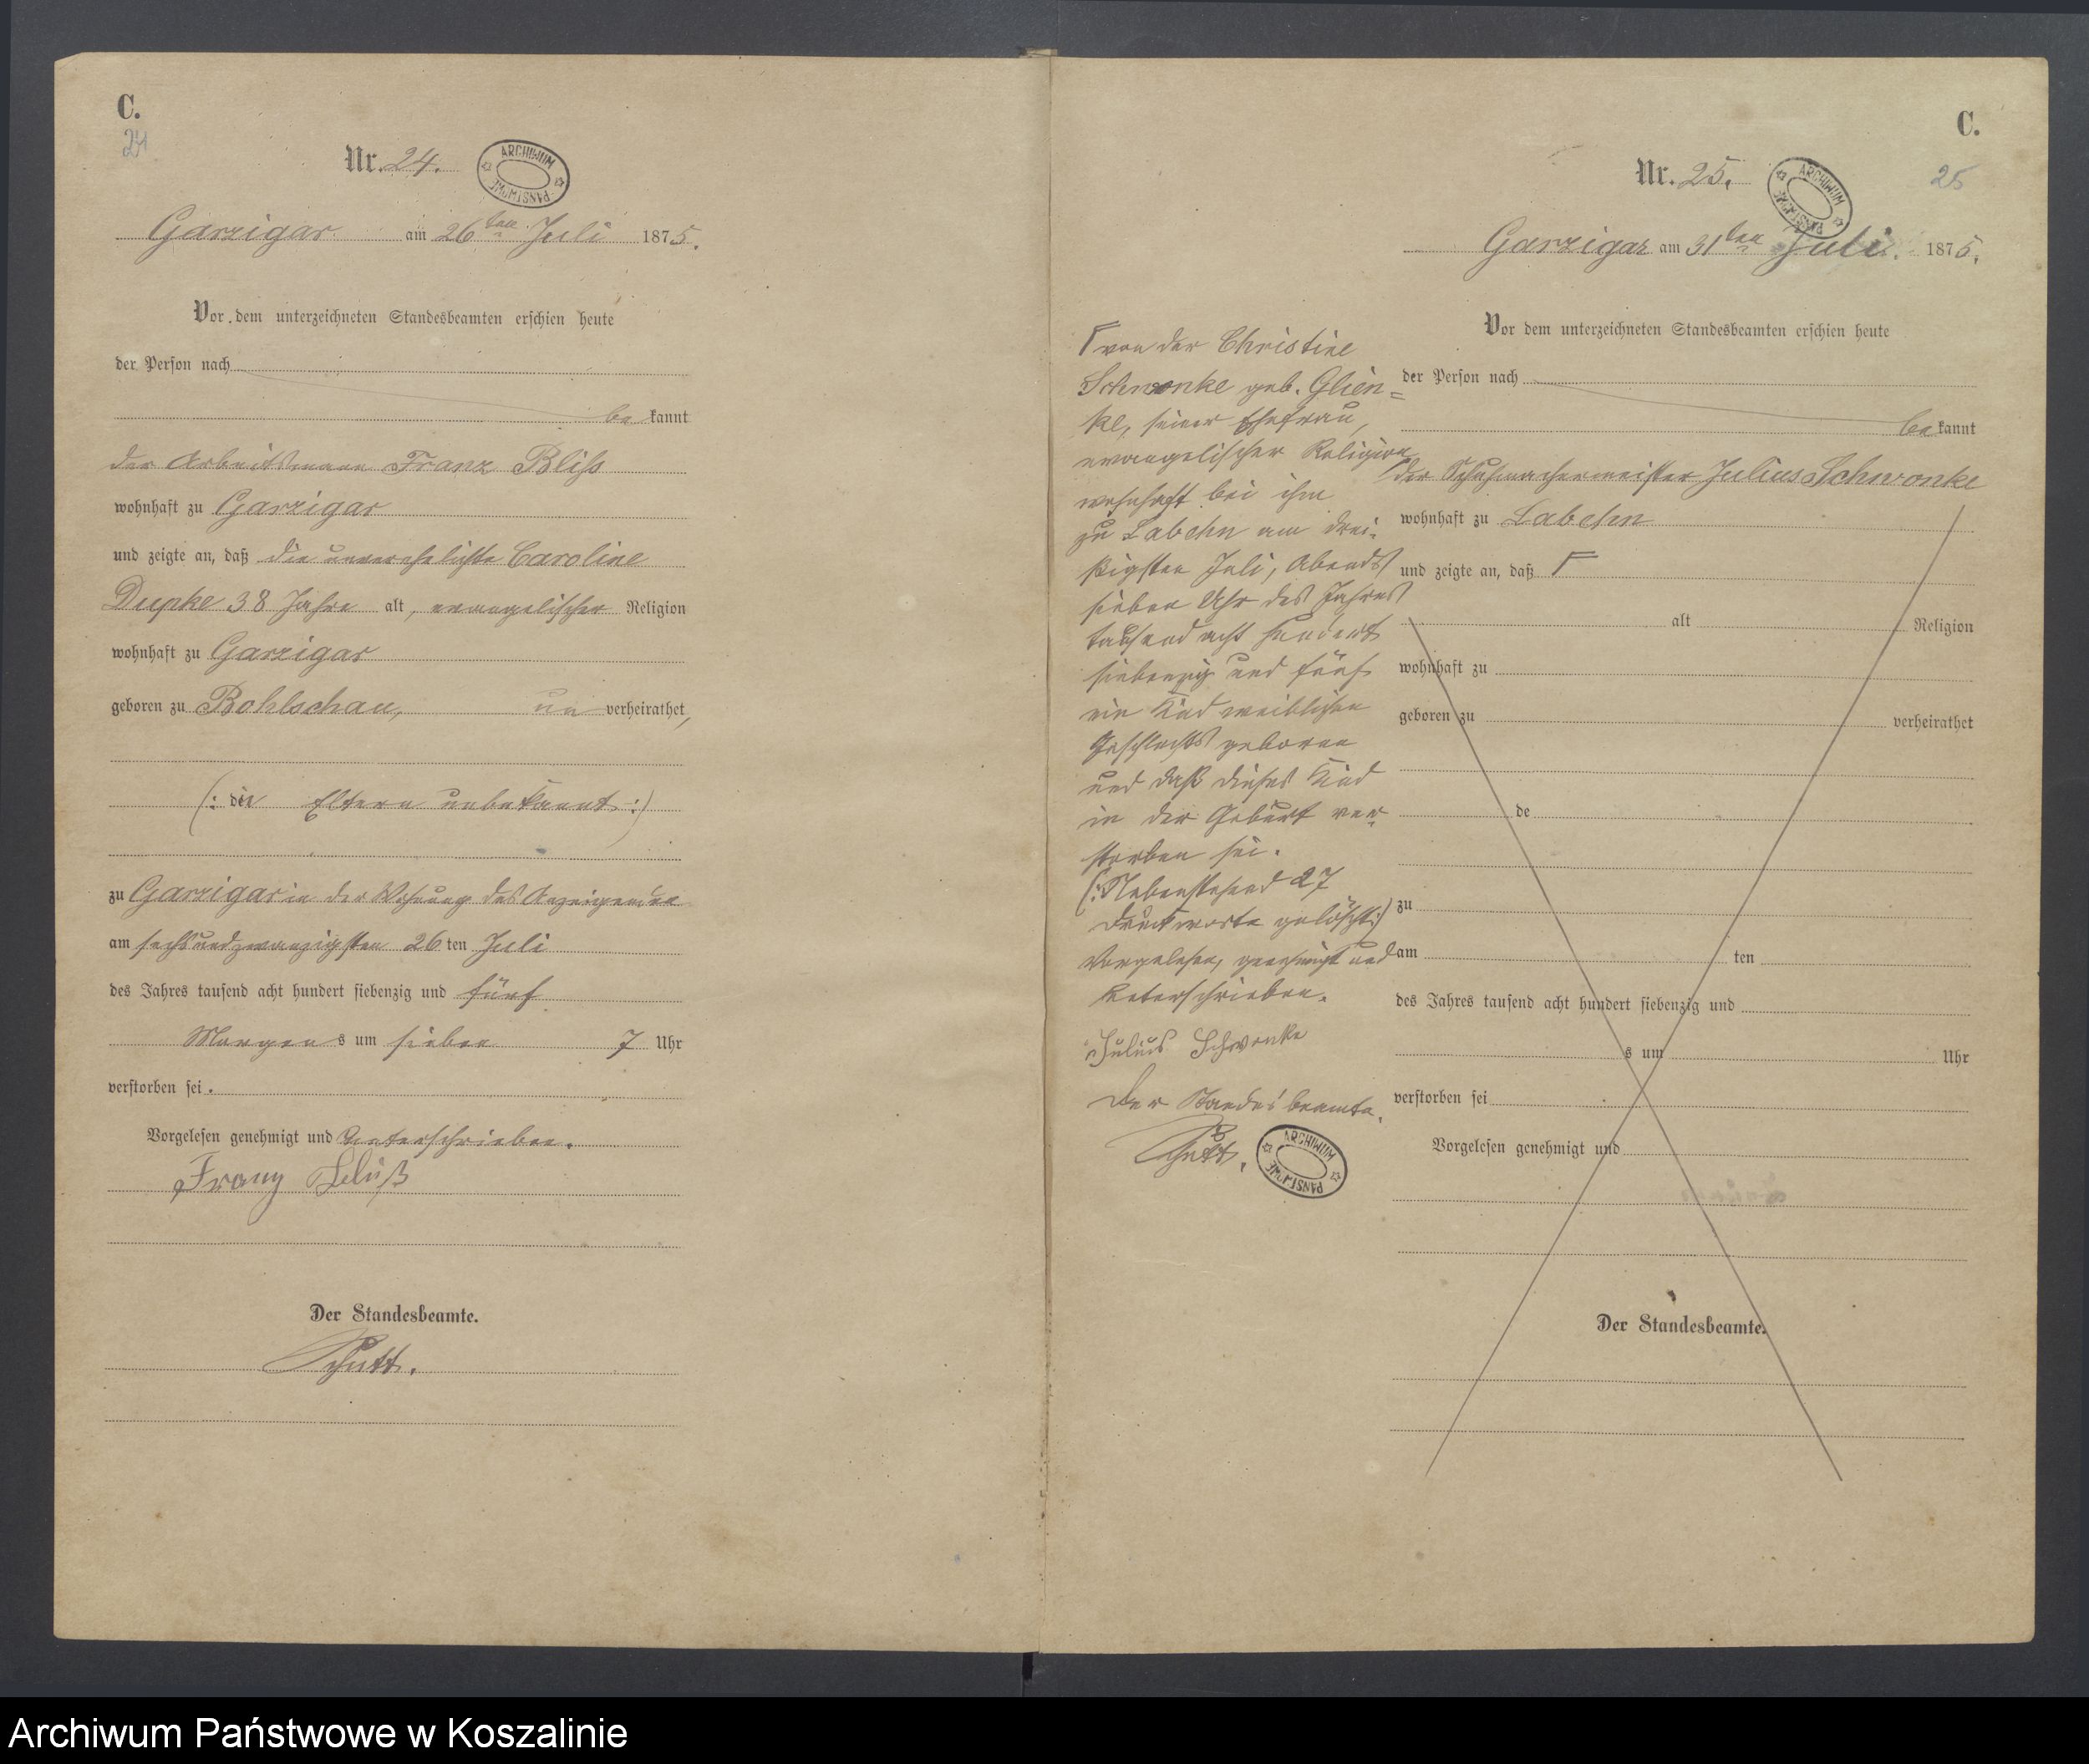 C.
24
Nr. 24.
ARCHIWUM PAŃSTWOWE
Garzigar am 26ten Juli 1875.
Vor dem unterzeichneten Standesbeamten erschien heute
der Person nach
be kannt
der Arbeitsmann Franz Bliss
wohnhaft zu Garzigar
und zeigte an, daß die unverehelichte Caroline
Dupke 38 Jahre alt, evangelischer Religion
wohnhaft zu Garzigar
geboren zu Bohlschau, un verheirathet,
(: die Eltern unbekannt :)
zu Garzigar in der Wohnung des Anzeigenden
am sechsundzwanzigsten 26 ten Juli
des Jahres tausend acht hundert siebenzig und fünf
Morgen s um sieben 7 Uhr
verstorben sei.
Vorgelesen genehmigt und unterschrieben.
Franz
Der Standesbeamte.
C.
25
Nr. 25.
ARCHIWUM PAŃSTWOWE
Garzigar am 31ten Juli. 1875.
Vor dem unterzeichneten Standesbeamten erschien heute
der Person nach
be kannt
der Schuhmachermeister Julius Schwonke
wohnhaft zu Labehn
und zeigte an, daß Γ
alt Religion
wohnhaft zu
geboren zu verheirathet
de
zu
am ten
des Jahres tausend acht hundert siebenzig und
s um Uhr
verstorben sei
Vorgelesen genehmigt und
Der Standesbeamte.
Γ von der Christine
Schwonke geb. Glien=
ke, seiner Ehefrau,
evangelischer Religion
wohnhaft bei ihm
zu Labehn am drei=
ßigsten Juli, Abends
sieben Uhr des Jahres
tausend acht hundert
siebenzig und fünf
ein Kind weiblichen
Geschlechts geboren
und daß dieses Kind
in der Geburt ver=
storben sei.
(: Nebenstehend 27
Druckworte gelöscht :)
Vorgelesen, genehmigt und
unterschrieben.
Julius Schwonke
Der Standesbeamte.
ARCHIWUM PAŃSTWOWE
Archiwum Państwowe w Koszalinie